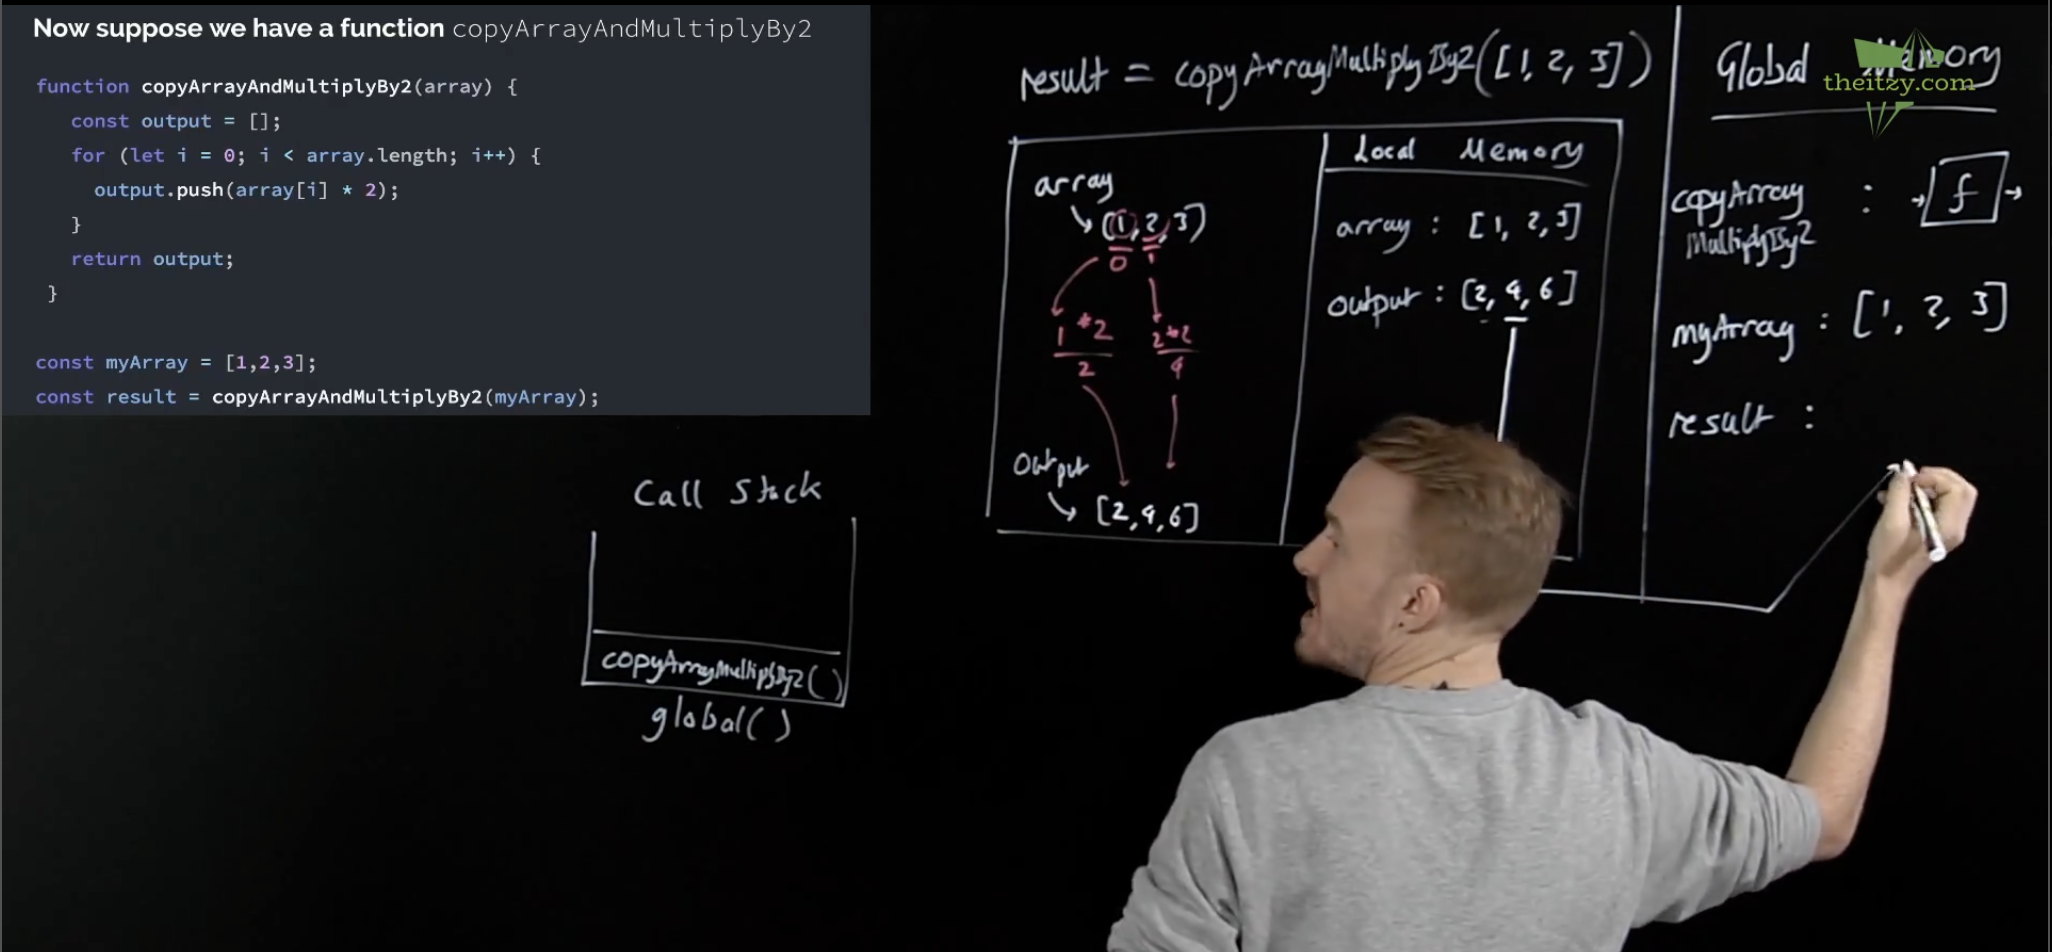 Now suppose we have a function copyArrayAndMultiplyBy2
function copyArrayAndMultiplyBy2(array) {
const output = [];
for (let i = 0; i < array.length; i++) {
output.push(array[i] * 2);
}
return output;
}
const myArray = [1,2,3];
const result = copyArrayAndMultiplyBy2(myArray);
Call Stack
copyArrayMultiplyBy2()
global()
result = copyArrayMultiplyBy2([1, 2, 3])
array
[1, 2, 3]
0 1
1 *2 2*2
2 4
Output
[2,4,6]
Local Memory
array : [1, 2, 3]
output : [2, 4, 6]
Global Memory
theitzy.com
copyArray : f
MultiplyBy2
myArray : [1, 2, 3]
result :